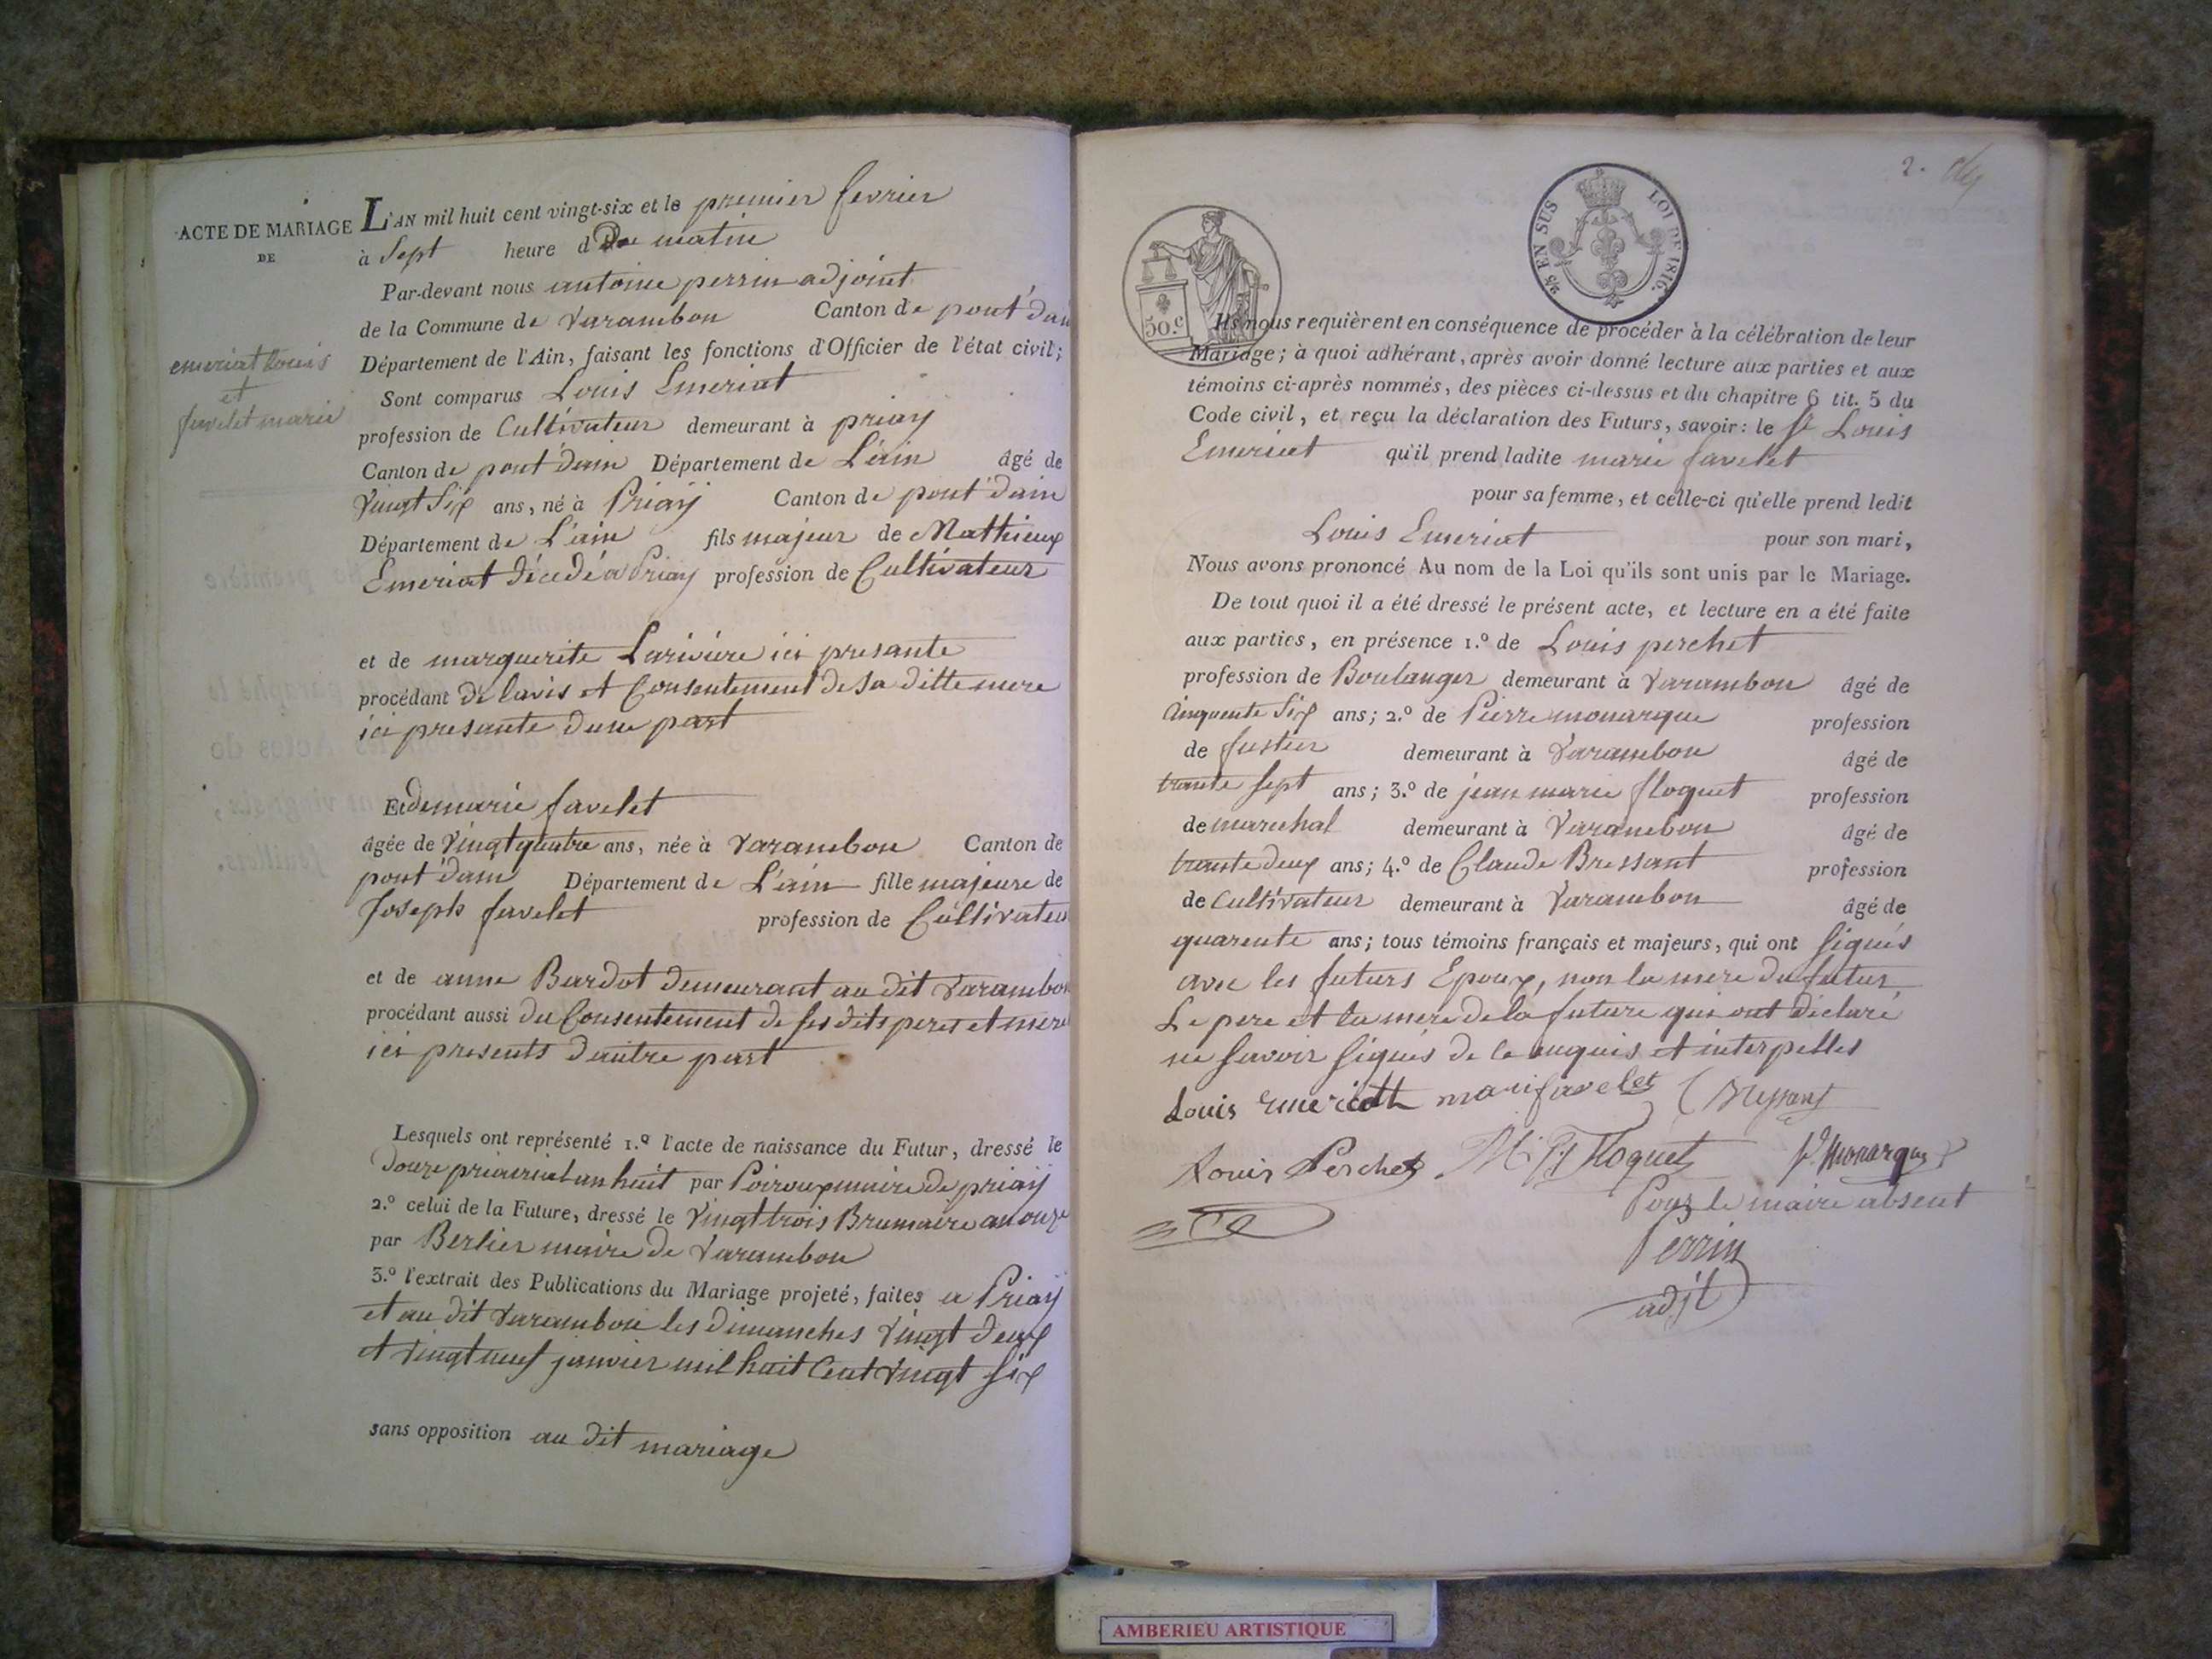 ACTE DE MARIAGE
DE
emeriat Louis
et
favelet marie
L'AN mil huit cent vingt-six et le premier fevrier
à Sept heure du matin
Par-devant nous antoine perrin adjoint
de la Commune de Varambon Canton de pont d'ain
Département de l'Ain, faisant les fonctions d'Officier de l'état civil;
Sont comparus Louis Emeriat
profession de Cultivateur demeurant à priay
Canton de pont d'ain Département de L'ain âgé de
Vingt Six ans, né à Priay Canton de pont d'ain
Département de L'ain fils majeur de Mathieux
Emeriat décédé a Priay profession de Cultivateur
et de marguerite Lariviere ici presante
procédant de lavis et Consentement de sa ditte mere
ici presante dune part
Et de marie favelet
âgée de Vingt quatre ans, née à Varambon Canton de
pont d'ain Département de L'ain fille majeure de
Joseph favelet profession de Cultivateu
et de anne Bardot demeurant au dit Varambon
procédant aussi du Consentement de ses dits peres et mere
ici presents dautre part
Lesquels ont représenté 1.º l'acte de naissance du Futur, dressé le
Douze priairial an huit par Poiroux maire de priay
2.º celui de la Future, dressé le Vingt trois Brumaire an onze
par Berlier maire de Varambon
3.º l'extrait des Publications du Mariage projeté, faites a Priay
et au dit Varambon les dimanches Vingt deux
et Vingt neuf janvier mil huit Cent Vingt Six
sans opposition au dit mariage
2.
25 EN SUS LOI DE 1816.
50.c
Ils nous requièrent en conséquence de procéder à la célébration de leur
Mariage; à quoi adhérant, après avoir donné lecture aux parties et aux
témoins ci-après nommés, des pièces ci-dessus et du chapitre 6 tit. 5 du
Code civil, et reçu la déclaration des Futurs, savoir: le Sr Louis
Emeriat qu'il prend ladite marie favelet
pour sa femme, et celle-ci qu'elle prend ledit
Louis Emeriat pour son mari,
Nous avons prononcé Au nom de la Loi qu'ils sont unis par le Mariage.
De tout quoi il a été dressé le présent acte, et lecture en a été faite
aux parties, en présence 1.º de Louis perchet
profession de Boulanger demeurant à Varambon âgé de
Cinquente Six ans; 2.º de Pierre monarque profession
de fustier demeurant à Varambon âgé de
trante Sept ans; 3.º de jean marie floquet profession
de marechal demeurant à Varambon âgé de
trante deux ans; 4.º de Claude Bressant profession
de Cultivateur demeurant à Varambon âgé de
quarente ans; tous témoins français et majeurs, qui ont Signés
avec les futurs Epoux, non la mere du futur
Le pere et la mere de la future qui ont declaré
ne Savoir Signés de ce enquis et interpelles
Louis emeriatt mari favelet C Bressant
Louis Perchet. Floquet P. monarque
Pour le maire absent
Perrin
adjt
AMBERIEU ARTISTIQUE